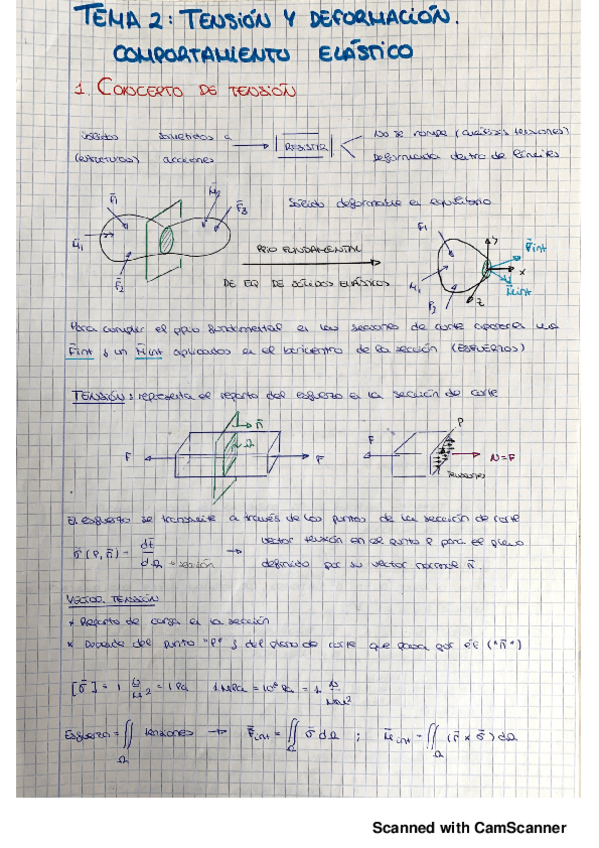 TEMA 2: TENSIÓN Y DEFORMACIÓN.
COMPORTAMIENTO ELÁSTICO
1. CONCEPTO DE TENSIÓN
sólidos sometidos a → RESISTIR No se rompa (análisis tensiones)
(estructuras) acciones Deformación dentro de límites
Sólido deformable en equilibrio
n̄ M̄2 F̄3 M̄1 F̄2
PPIO FUNDAMENTAL
DE EQ DE SÓLIDOS ELÁSTICOS
F1 M1 F2 y x z F̄int M̄int
Para cumplir el ppio fundamental en las secciones de corte aparecen una
F̄int y un M̄int aplicados en el baricentro de la sección (ESFUERZOS)
TENSIÓN: representa el reparto del esfuerzo en la sección de corte
F n̄ Ω F F P N=F
tensiones
El esfuerzo se transmite a través de los puntos de la sección de corte
σ̄ (P, n̄) = df̄/dΩ → sección → vector tensión en el punto P para el plano
definido por su vector normal n̄.
VECTOR TENSIÓN
* Reparto de carga en la sección
* Depende del punto "P" y del plano de corte que pasa por él ("n̄")
[σ̄] = 1 N/M² = 1 Pa 1 MPa = 10⁶ Pa = 1 N/mm²
Esfuerzo = ∬Ω tensiones → F̄int = ∬Ω σ̄ dΩ ; M̄int = ∬Ω (r̄ × σ̄) dΩ
Scanned with CamScanner